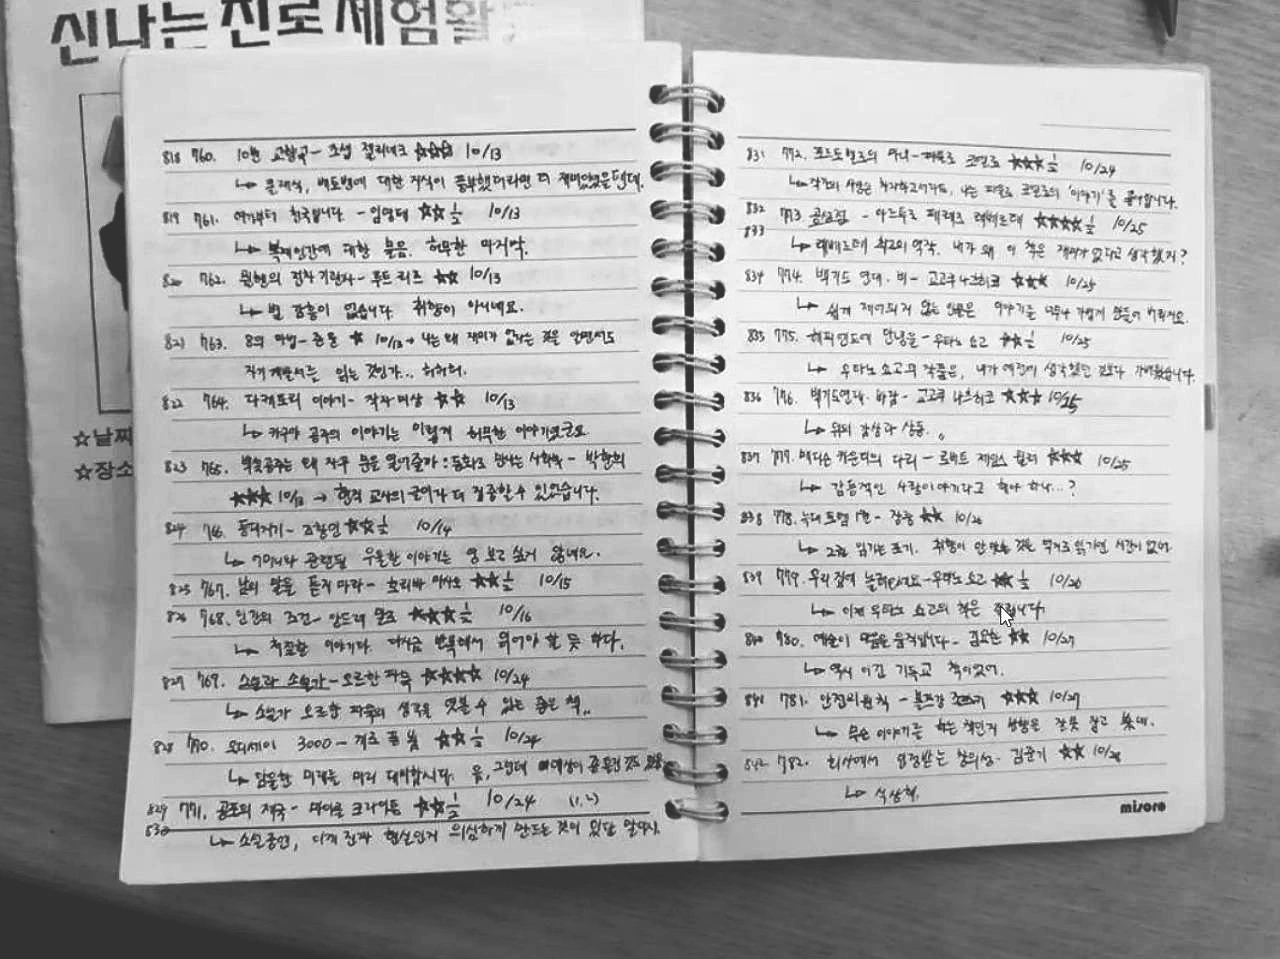 신나는 진로체험활
☆날짜
☆장소
818 760. 10번 교향곡 - 조셉 젤리네크 ★★★ 10/13
↳ 클래식, 베토벤에 대한 지식이 풍부했더라면 더 재미있었을텐데.
819 761. 여기부터 천국입니다 - 임영태 ★★½ 10/13
↳ 복제인간에 대한 물음. 허무한 마지막.
820 762. 원현의 전차 기관사 - 루드 리즈 ★★ 10/13
↳ 별 감흥이 없습니다. 취향이 아니네요.
821 763. 8의 마법 - ★ 10/13 → 나는 왜 재미가 없다는 것을 알면서도
자기계발서를 읽는 것인가... 허허허.
822 764. 다케토리 이야기 - 작자 미상 ★★ 10/13
↳ 카구야 공주의 이야기는 이렇게 허무한 이야기였군요.
823 765. 백설공주는 왜 자꾸 문을 열어줄까 : 동화로 만나는 사회학 - 박현희
★★★ 10/13 → 현직 교사의 글이라 더 집중할 수 있었습니다.
824 766. - 조향연 ★★½ 10/14
↳ 관련된 우울한 이야기는 영 보고 싶지 않네요.
825 767. 남의 말을 듣지 마라 - 호리바 마사오 ★★½ 10/15
826 768. 인간의 조건 - 앙드레 말로 ★★★½ 10/16
↳ 처절한 이야기다. 다시금 반복해서 읽어야 할 듯 하다.
827 769. 소설과 소설가 - 오르한 파묵 ★★★★ 10/24
↳ 소설가 오르한 파묵의 생각을 엿볼 수 있는 좋은 책..
828 770. 오디세이 3000 - ★★½ 10/24
↳ 암울한 미래를 미리 대비합시다. 음, 그런데
829 771. 공포의 제국 - 마이클 크라이튼 ★★½ 10/24 (1,2)
830 ↳ 소설이지만, 이게 진짜 현실인지 의심하게 만드는 것이 있단 말이지.
831 772. 포르토벨로의 마녀 - 파울로 코엘료 ★★★½ 10/24
↳ 나는 파울로 코엘료의 '이야기'를 좋아합니다.
832 773. 공성전 - 아르투로 페레스 레베르테 ★★★★½ 10/25
833 ↳ 레베르테 최고의 역작. 내가 왜 이 책은 재미가 없다고 생각했지?
834 774. 백기도연대. 비 - 교고쿠 나츠히코 ★★★ 10/25
↳ 쉽게 제어되지 않는 인물은 이야기를 너무나 가볍게 만들어 버리지요.
835 775. 해피엔드에 안녕을 - 우타노 쇼고 ★★½ 10/25
↳ 우타노 쇼고의 작품은, 내가 예전에 생각했던 것보다 가벼웠습니다.
836 776. 백기도연대. 바람 - 교고쿠 나츠히코 ★★★ 10/25
↳ 위의 감상과 상동.
837 777. 매디슨 카운티의 다리 - 로버트 제임스 월러 ★★★ 10/25
↳ 감동적인 사랑이야기라고 해야 하나...?
838 778. 늑대토템 1권 - 장룽 ★★ 10/26
↳ 2권 읽기는 포기. 취향이 안 맞는 것은 억지로 읽기엔 시간이 없어.
839 779. 우리 집에 놀러오세요 - 우타노 쇼고 ★★½ 10/26
↳ 이제 우타노 쇼고의 책은
840 780. 예술이 마음을 움직입니다 - 김요한 ★★ 10/27
↳ 역시 이건 기독교 책이었어.
841 781. 안전의 원칙 - 볼프강 조프스키 ★★★ 10/27
↳ 무슨 이야기를 하는 책인지 방향을 잘못 잡고 봤네.
842 782. 회사에서 인정받는 창의성. 김준기 ★★ 10/28
↳ 식상해.
misoro